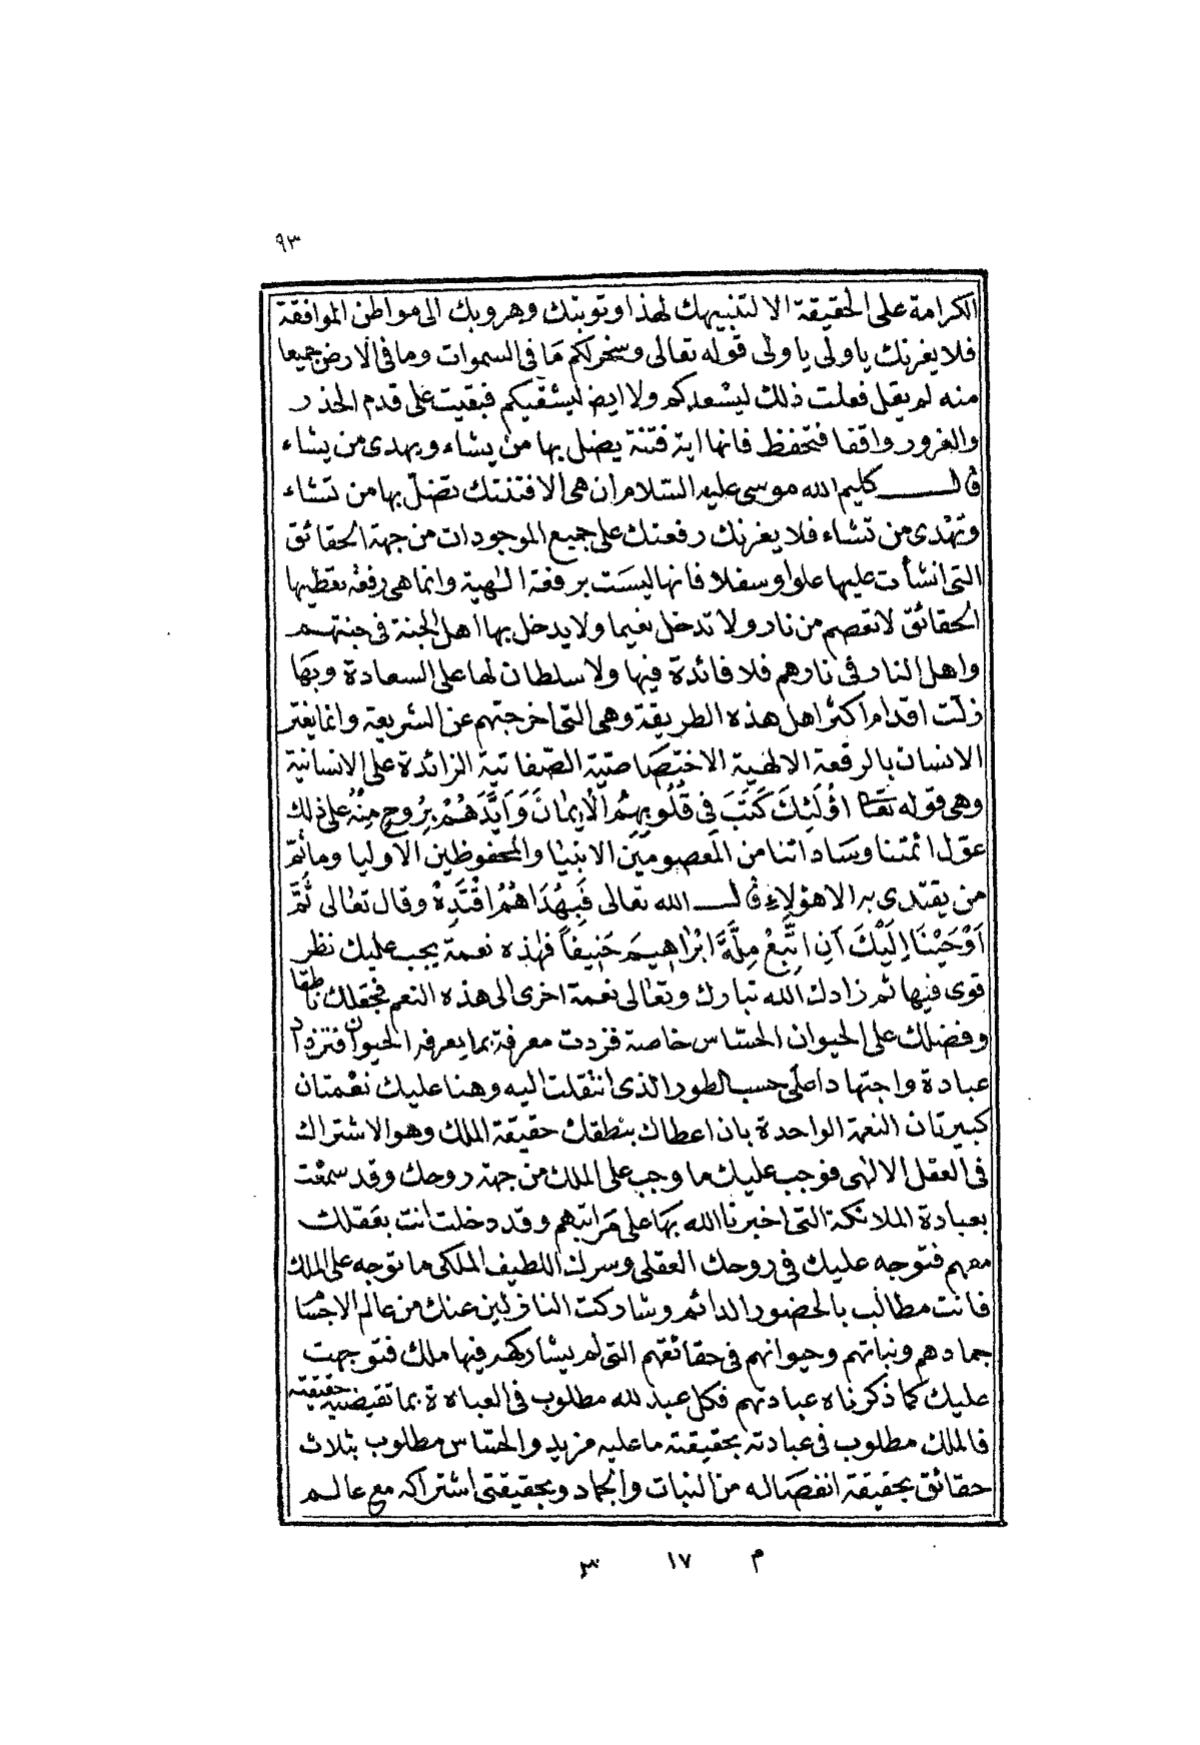 ٩٣
الكرامة على الحقيقة الا لتنبيهك لهذا وتوبتك وهروبك الى مواطن الموافقة
فلا يغرنك ياولى ياولى قوله تعالى وسخر لكم مَا فى السموات وما فى الارض جميعا
منه لم يقل فعلت ذلك ليسْعدكم ولا ايضا ليشقيكم فبقيت على قدم الحذر
والغرور واقفا فتحفظ فانها اية فتنة يضل بها من يشاء ويهدى من يشاء
قال كليم الله موسى عليه السّلام ان هى الا فتنتك تضلّ بها من تشاء
وتهْدى من تشاء فلا يغرنك رفعتك على جميع الموجودات من جهة الحقائق
التى انشأت عليها علوا وسفلا فانها ليسَت برفعة الٰهية وانما هى رفعة تعطيها
الحقائق لا تعصم من نار ولا تدخل نعيما ولا يدخل بها اهل الجنة فى جنتهم
واهل النار فى نارهم فلا فائدة فيها ولا سلطان لها على السعادة وبهَا
زلت اقدام اكثر اهل هذه الطريقة وهى التى اخرجتهم عن الشريعة وانما يغتر
الانسان بالرفعة الالهية الاختصَاصتية الصّفاتية الزائدة على الانسانية
وهى قوله تعَا اُولَئِكَ كَتَبَ فِى قُلُوبِهِمُ الْاِيمَانَ وَاَيَّدَهُمْ بِرُوحٍ مِنْهُ على ذلك
عوّل ائمتنا وسَاداتنا من المعصومين الانبيَا والمحفوظين الاوليا وما ثمّ
من يقتدى به الا هؤلاءِ قال الله تعالى فَبِهُدَاهُمُ اقْتَدِهْ وقال تعالى ثُمَّ
اَوْحَيْنَا اِلَيْكَ اَنِ اتَّبِعْ مِلَّةَ اِبْرَاهِيمَ حَنِيفاً فهٰذه نعمة يجب عليك نظر
قوى فيها ثم زادك الله تبارك وتعالى نعمة اخرى الى هذه النعم فجعلك ناطقا
وفضلك على الحيوان الحسّاس خاصة فزدت معرفة بما يعرفه الحيوان فتزداد
عبادة واجتهادا على حسب الطور الذى انتقلت اليه وهنا عليك نعْمتان
كبيرتان النعمة الواحدة بان اعطاك بنطقك حقيقة الملك وهو الاشتراك
فى العقل الالهى فوجب عليك ما وجب على الملك من جهة روحك وقد سمعْت
بعبادة الملائكة التى اخبرنا الله بهَا على مَراتبهم وقد دخلت انت بعَقلك
معهم فتوجه عليك فى روحك العقلى وسرك اللطيف الملكى ما توجه على الملك
فانت مطالب بالحضور الدائم وشاركت النازلين عنك من عالم الاحْسَا
جمادهم ونباتهم وحيوانهم فى حقائقهم التى لم يشاركهم فيها ملك فتوجهت
عليك كما ذكرناه عبادتهم فكل عبد لله مطلوب فى العبادة بما تقيضيه حقيقته
فالملك مطلوب فى عبادته بحقيقته ما عليه مزيد والحسّاس مطلوب بثلاث
حقائق بحقيقة انفصَاله من النبات والجماد وبحقيقتى اشتراكه مع عالم
م ١٧